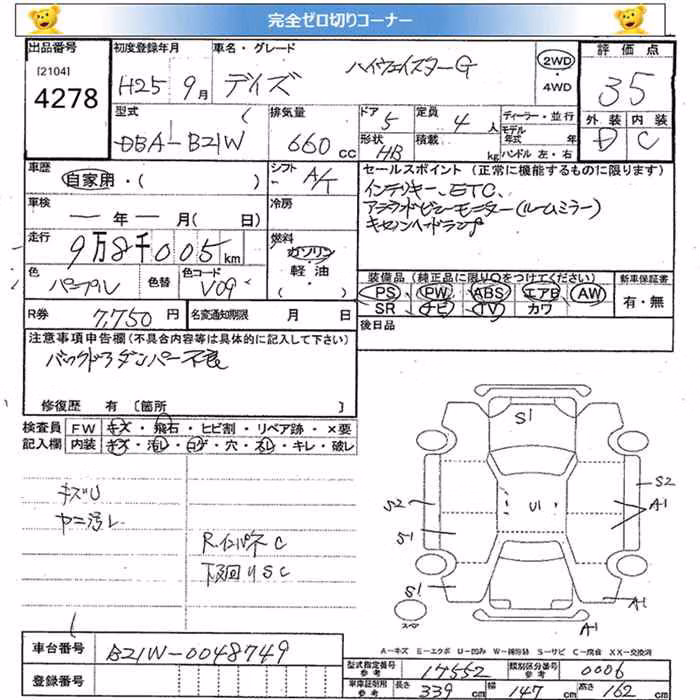 完全ゼロ切りコーナー
出品番号
[2104]
4278
初度登録年月
H25年 9月
車名・グレード
デイズ ハイウェイスターG
2WD
・
4WD
評価点
35
外装 内装
D C
型式
DBA-B21W
排気量
660 cc
ドア
5
形状
HB
定員
4 人
積載
kg
ディーラー・並行
モデル年式 年
ハンドル 左・右
車歴
自家用・( )
シフト
A/T
車検
― 年 ― 月( 日)
冷房
走行
9万8千005km
燃料
ガソリン
・
軽油
・( )
色
パープル
色替
色コード
V09
R券
7,750円
名変通知期限 月 日
セールスポイント (正常に機能するものに限ります)
インテリキー、ETC、
アラウンドビューモニター(ルームミラー)
キセノンヘッドランプ
装備品 (純正品に限り○をつけてください)
PS PW ABS エアB AW
SR ナビ TV カワ
新車保証書
有・無
後日品
注意事項申告欄 (不具合内容等は具体的に記入して下さい)
バックドアダンパー不良
修復歴 有 [箇所 ]
検査員記入欄
FW キズ・飛石・ヒビ割・リペア跡・×要
内装 キズ・汚レ・コゲ・穴・スレ・キレ・破レ
キズU
ヤニ汚レ
R.インパネC
下廻りSC
S1
S2
S2
U1
A1
S1
S1
A1
A1
スペア
A-キズ E-エクボ U-凹み W-補修跡 S-サビ C-腐食 XX-交換済
車台番号
B21W-0048749
登録番号
型式指定番号 参考
17552
類別区分番号 参考
0006
車庫証明用 参考
長さ 339 cm 幅 147 cm 高さ 162 cm